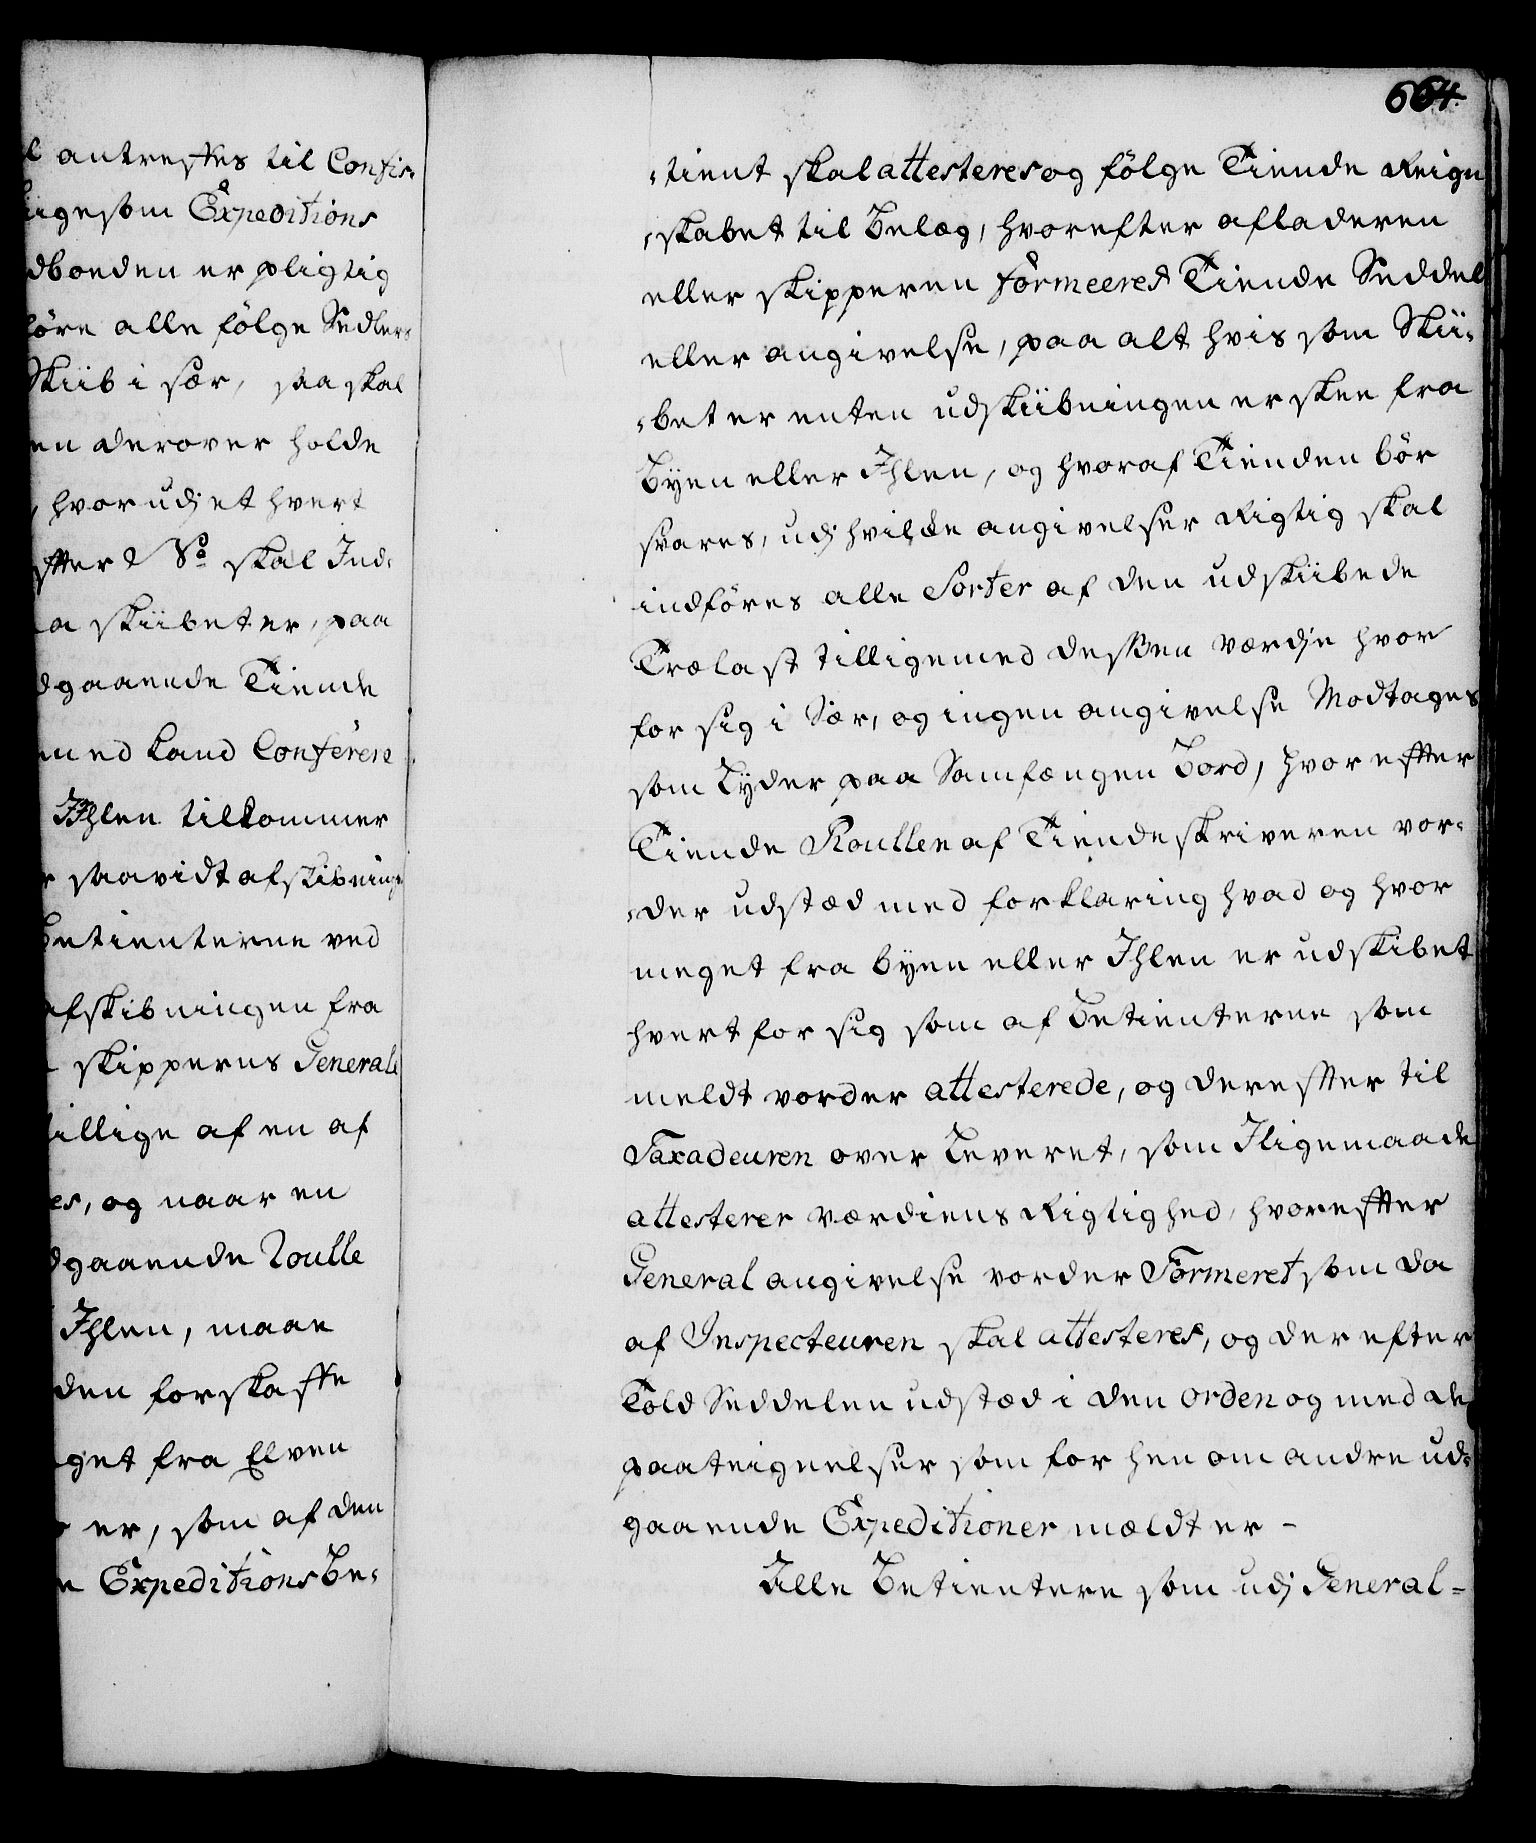 l antreffes til Confis-
ligesom Expeditions
dbonden er pligtig
före alle fölge Sedlers
Skiib i sær, saa skal
en derover holde
, hvor udj et hvert
effter No skal Ind-
a skiibet er, paa
dgaaende Tiende
med Land Conferere
Ihlen tilkommer
r saavidt afskibninge
Betienterne ved
afskibningen fra
skipperns General
tillige af en af
es, og naar en
dgaaende Roulle
Ihlen, maae
den forskaffe
get fra Elven
er, som af den
e Expeditions Be-
664.
-tient skal attesteres og fölge Tiende Reign
-skabet til Belæg, hvorefter afladeren
eller skipperen formeeres Tiende Seddel
eller angivelse, paa alt hvis som Skii-
-bet er enten udskiibningen er skee fra
Byen eller Ihlen, og hvoraf Tienden bör
svares, udj hvilke angivelser Rigtig skal
indföres alle Sorter af den udskiibede
Trælast tilligemed dessen værdje hvor
for sig i Sær, og ingen angivelse Modtages
som Lyder paa Samfængen Bord, hvor effter
Tiende Roullen af Tiendeskriveren vor-
-der udstæd med forklaring hvad og hvor
meget fra byen eller Ihlen er udskibet
hvert for sig som af Betienterne som
meldt vorder attesterede, og dereffter til
Taxadeuren over Leveret, som Iligemaade
attesterer værdiens Rigtighed, hvoreffter
General angivelse vorder Formeret som da
af Inspecteuren skal attesteres, og der efter
Told Seddelen udstæd i den orden og med de
paateignelser som for hen om andre ud-
gaaende Expeditioner meldt er -
Alle Betientere som udj General-